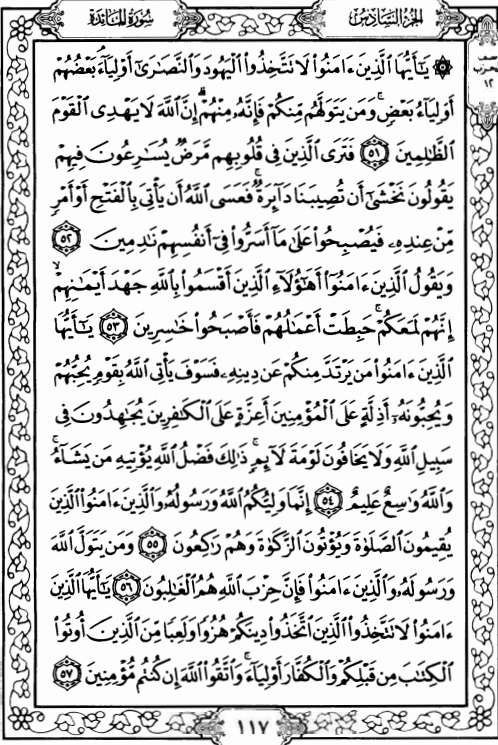 الجزء السادس
سورة المائدة
نصف
الحزب
١٢
۞ يَٰٓأَيُّهَا ٱلَّذِينَ ءَامَنُوا۟ لَا تَتَّخِذُوا۟ ٱلْيَهُودَ وَٱلنَّصَٰرَىٰٓ أَوْلِيَآءَ ۘ بَعْضُهُمْ
أَوْلِيَآءُ بَعْضٍ ۚ وَمَن يَتَوَلَّهُم مِّنكُمْ فَإِنَّهُۥ مِنْهُمْ ۗ إِنَّ ٱللَّهَ لَا يَهْدِى ٱلْقَوْمَ
ٱلظَّٰلِمِينَ ۝٥١ فَتَرَى ٱلَّذِينَ فِى قُلُوبِهِم مَّرَضٌ يُسَٰرِعُونَ فِيهِمْ
يَقُولُونَ نَخْشَىٰٓ أَن تُصِيبَنَا دَآئِرَةٌ ۚ فَعَسَى ٱللَّهُ أَن يَأْتِىَ بِٱلْفَتْحِ أَوْ أَمْرٍ
مِّنْ عِندِهِۦ فَيُصْبِحُوا۟ عَلَىٰ مَآ أَسَرُّوا۟ فِىٓ أَنفُسِهِمْ نَٰدِمِينَ ۝٥٢
وَيَقُولُ ٱلَّذِينَ ءَامَنُوٓا۟ أَهَٰٓؤُلَآءِ ٱلَّذِينَ أَقْسَمُوا۟ بِٱللَّهِ جَهْدَ أَيْمَٰنِهِمْ ۙ
إِنَّهُمْ لَمَعَكُمْ ۚ حَبِطَتْ أَعْمَٰلُهُمْ فَأَصْبَحُوا۟ خَٰسِرِينَ ۝٥٣ يَٰٓأَيُّهَا
ٱلَّذِينَ ءَامَنُوا۟ مَن يَرْتَدَّ مِنكُمْ عَن دِينِهِۦ فَسَوْفَ يَأْتِى ٱللَّهُ بِقَوْمٍ يُحِبُّهُمْ
وَيُحِبُّونَهُۥٓ أَذِلَّةٍ عَلَى ٱلْمُؤْمِنِينَ أَعِزَّةٍ عَلَى ٱلْكَٰفِرِينَ يُجَٰهِدُونَ فِى
سَبِيلِ ٱللَّهِ وَلَا يَخَافُونَ لَوْمَةَ لَآئِمٍ ۚ ذَٰلِكَ فَضْلُ ٱللَّهِ يُؤْتِيهِ مَن يَشَآءُ ۚ
وَٱللَّهُ وَٰسِعٌ عَلِيمٌ ۝٥٤ إِنَّمَا وَلِيُّكُمُ ٱللَّهُ وَرَسُولُهُۥ وَٱلَّذِينَ ءَامَنُوا۟ ٱلَّذِينَ
يُقِيمُونَ ٱلصَّلَوٰةَ وَيُؤْتُونَ ٱلزَّكَوٰةَ وَهُمْ رَٰكِعُونَ ۝٥٥ وَمَن يَتَوَلَّ ٱللَّهَ
وَرَسُولَهُۥ وَٱلَّذِينَ ءَامَنُوا۟ فَإِنَّ حِزْبَ ٱللَّهِ هُمُ ٱلْغَٰلِبُونَ ۝٥٦ يَٰٓأَيُّهَا ٱلَّذِينَ
ءَامَنُوا۟ لَا تَتَّخِذُوا۟ ٱلَّذِينَ ٱتَّخَذُوا۟ دِينَكُمْ هُزُوًا وَلَعِبًا مِّنَ ٱلَّذِينَ أُوتُوا۟
ٱلْكِتَٰبَ مِن قَبْلِكُمْ وَٱلْكُفَّارَ أَوْلِيَآءَ ۚ وَٱتَّقُوا۟ ٱللَّهَ إِن كُنتُم مُّؤْمِنِينَ ۝٥٧
١١٧